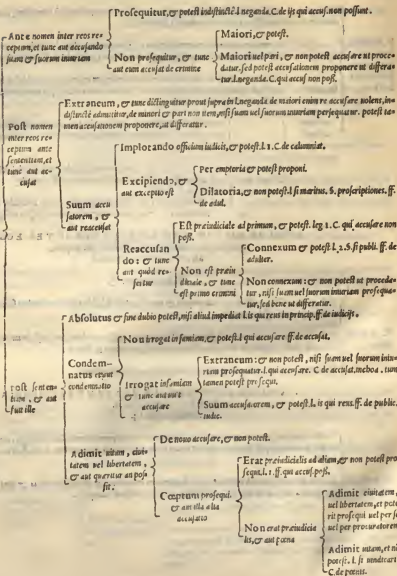 Prosequitur, & potest indistincte l. neganda. C. de ijs qui accus. non possunt.
Ante nomen inter reos re-
ceptum, et tunc aut accusando
suam & suorum iniuriam
Maiori, & potest.
Non prosequitur, & tunc
aut eum accusat de crimine
Maiori uel pari, & non potest accusare ut proce-
datur. sed potest accusationem proponere ut differa-
tur. l. neganda. C. qui accus. non poss.
Extraneum, & tunc distinguitur prout supra in l. neganda de maiori enim re accusare uolens, in-
distincte admittitur, de minori & pari non item, nisi suam uel suorum iniuriam persequatur. potest ta-
men accusationem proponere, ut differatur.
Post nomen
inter reos re-
ceptum ante
sententiam, et
tunc aut ac-
cusat
Implorando officium iudicis, & potest. l. 1. C. de calumniat.
Suum accu
satorem, &
aut reaccusat
Excipiendo, &
aut exceptio est
Peremptoria & potest proponi.
Dilatoria, & non potest. l. si maritus. §. proscriptiones. ff.
de adul.
Reaccusan
do: & tunc
aut quod re-
fertur
Est præiudiciale ad primum, & potest. leg. 1. C. qui accusare non
poss.
Non est præiu
diciale, & tunc
est primo crimini
Connexum & potest l. 2. §. si publi. ff. de
adulter.
Non connexum: & non potest ut proceda-
tur, nisi suam uel suorum iniuriam prosequa-
tur, sed bene ut differatur.
Absolutus & sine dubio potest, nisi aliud impediat l. is qui reus in princip. ff. de iudicijs.
Post senten-
tiam, & aut
fuit ille
Condem-
natus et aut
condemnatio
Non irrogat infamiam, & potest. l. qui accusare ff. de accusat.
Irrogat infamiam
& tunc aut uult
accusare
Extraneum: & non potest, nisi suam uel suorum iniu-
riam prosequatur. l. qui accusare. C. de accusat. tunc
tamen potest prosequi.
Suum accusatorem, & potest. l. is qui reus. ff. de public.
iudic.
Adimit uitam, ciui-
tatem uel libertatem,
& aut quæritur an pos-
sit.
De nouo accusare, & non potest.
Cœptum prosequi.
& aut illa alia
accusatio
Erat præiudicialis ad aliam, & potest pro
sequi. l. 1. ff. qui accus. poss.
Non erat præiudicia
lis, & aut pœna
Adimit ciuitatem,
uel libertatem, et pote
rit prosequi uel per se
uel per procuratorem
Adimit uitam, et ni
potest. l. si uendicari
C. de pœnis.